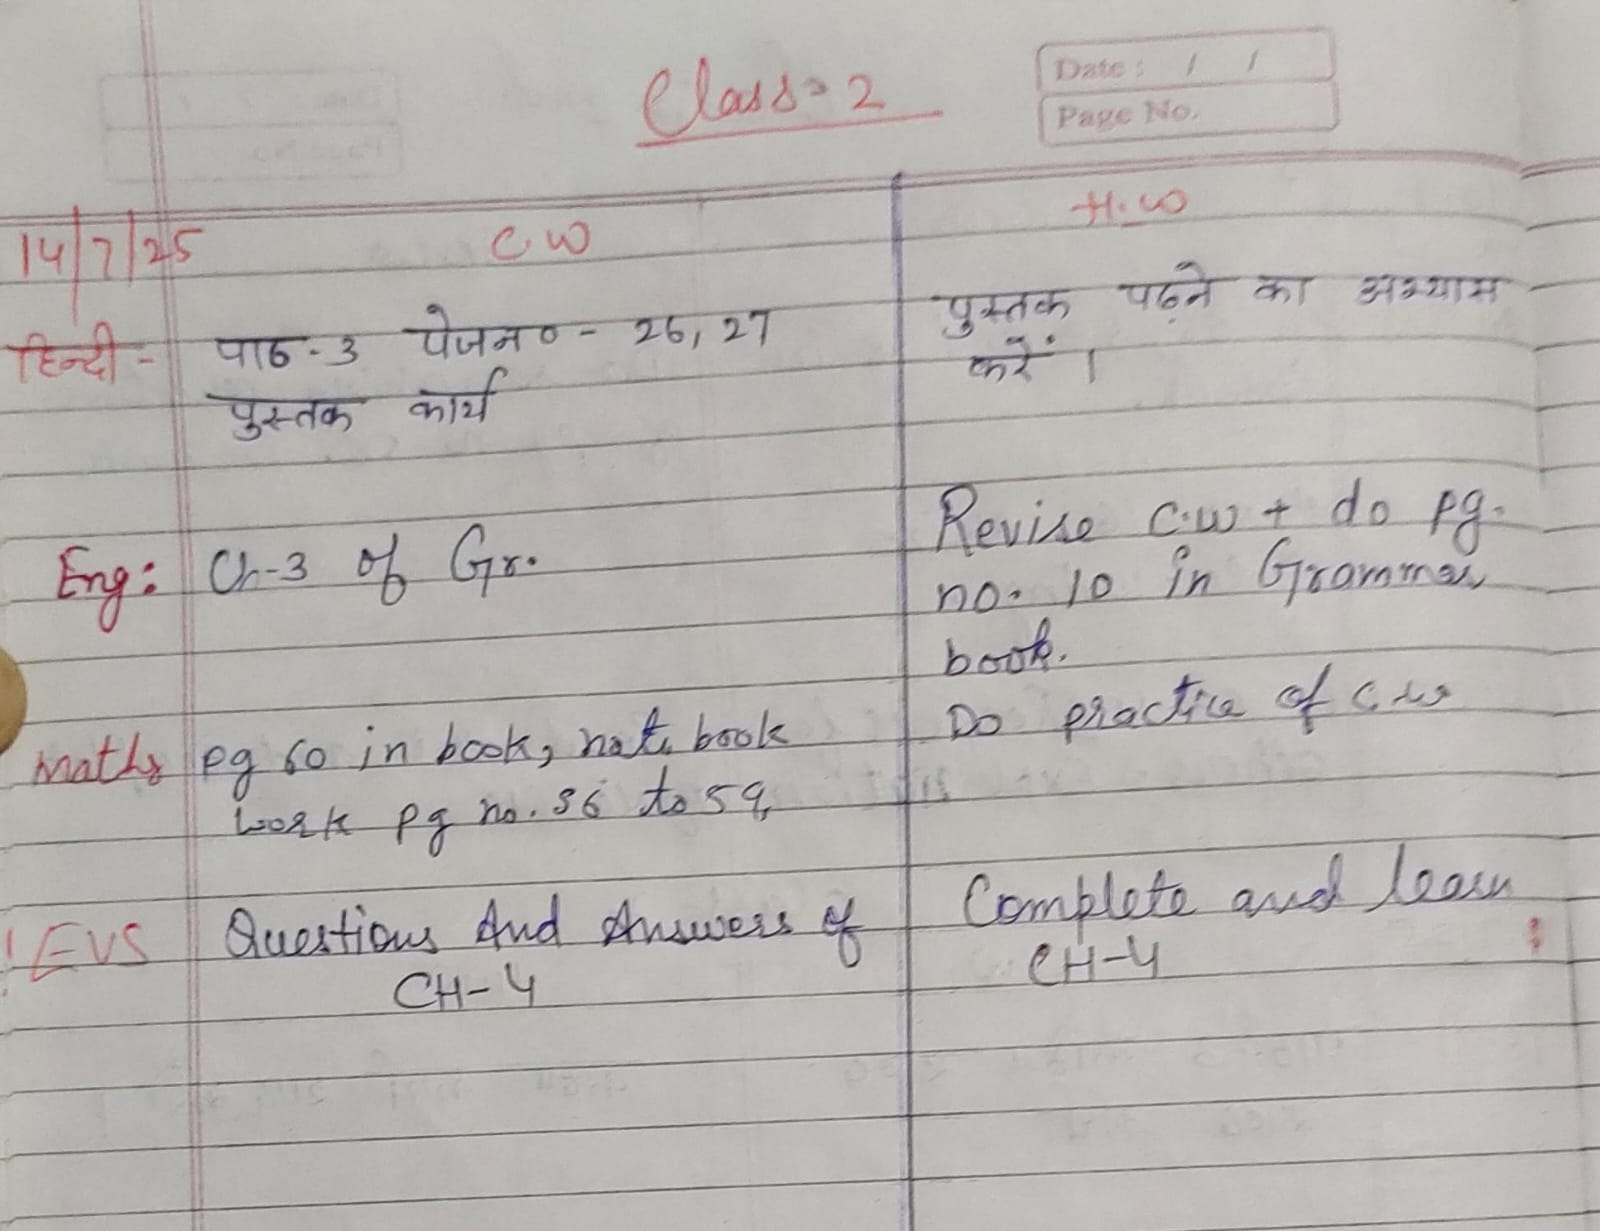 Class-2
Date: / /
Page No.
14/7/25 C.W H.W
हिन्दी - पाठ-3 पेजन०- 26, 27
पुस्तक कार्य
पुस्तक पढ़ने का अभ्यास
करें।
Eng: Ch-3 of Gr.
Revise C.W + do pg.
no. 10 in Grammar
book.
Maths pg 60 in book, note book
work pg no. 56 to 59
Do practice of C.W
EVS Questions And Answers of
CH-4
Complete and learn
CH-4